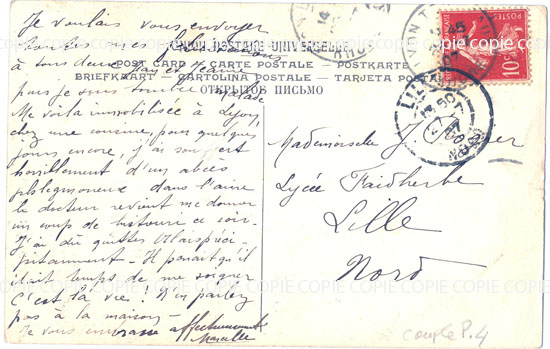 Je voulais vous envoyer
toutes mes
UNION POSTALE UNIVERSELLE
à tous deux
POST CARD CARTE POSTALE — POSTKARTE
BRIEFKAART — CARTOLINA POSTALE — TARJETA POSTAL
ОТКРЫТОЕ ПИСЬМО
puis je suis tombée malade
Me voilà immobilisée à Lyon,
chez une cousine, pour quelques
jours encore, j'ai souffert
horriblement d'un abcès
phlegmoneux dans l'aine
le docteur revient me donner
un coup de bistouri ce soir.
J'ai dû quitter préci-
pitamment — Il paraît qu'il
était temps de me soigner
C'est la vie ! N'en parlez
pas à la maison —
Je vous embrasse affectueusement
Marcelle
Mademoiselle J.
Lycée Faidherbe
Lille
Nord
10
POSTES
LILLE
NORD
couple P.4
COPIE COPIE COPIE COPIE COPIE COPIE COPIE COPIE